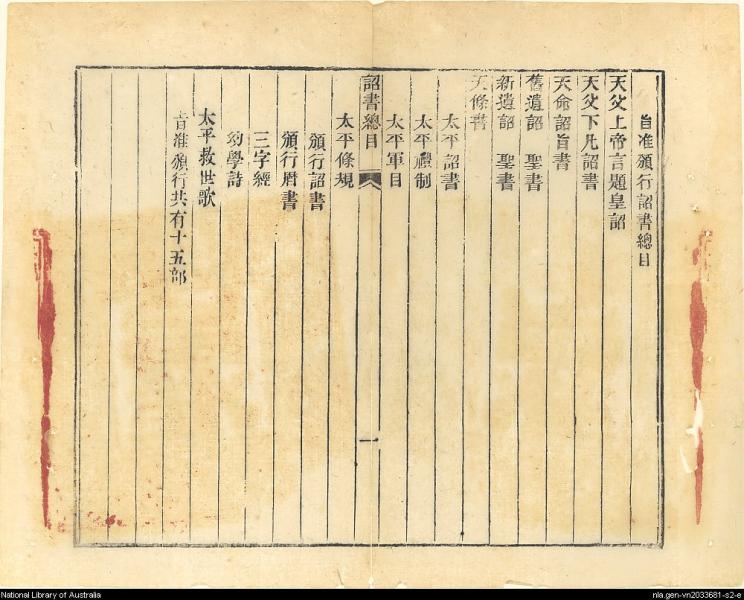 旨准頒行詔書總目
天父上帝言題皇詔
天父下凡詔書
天命詔旨書
舊遺詔 聖書
新遺詔 聖書
天條書
太平詔書
太平禮制
太平軍目
詔書總目 一
太平條規
頒行詔書
頒行曆書
三字經
幼學詩
太平救世歌
旨准頒行共有十五部
National Library of Australia
nla.gen-vn2033681-s2-e